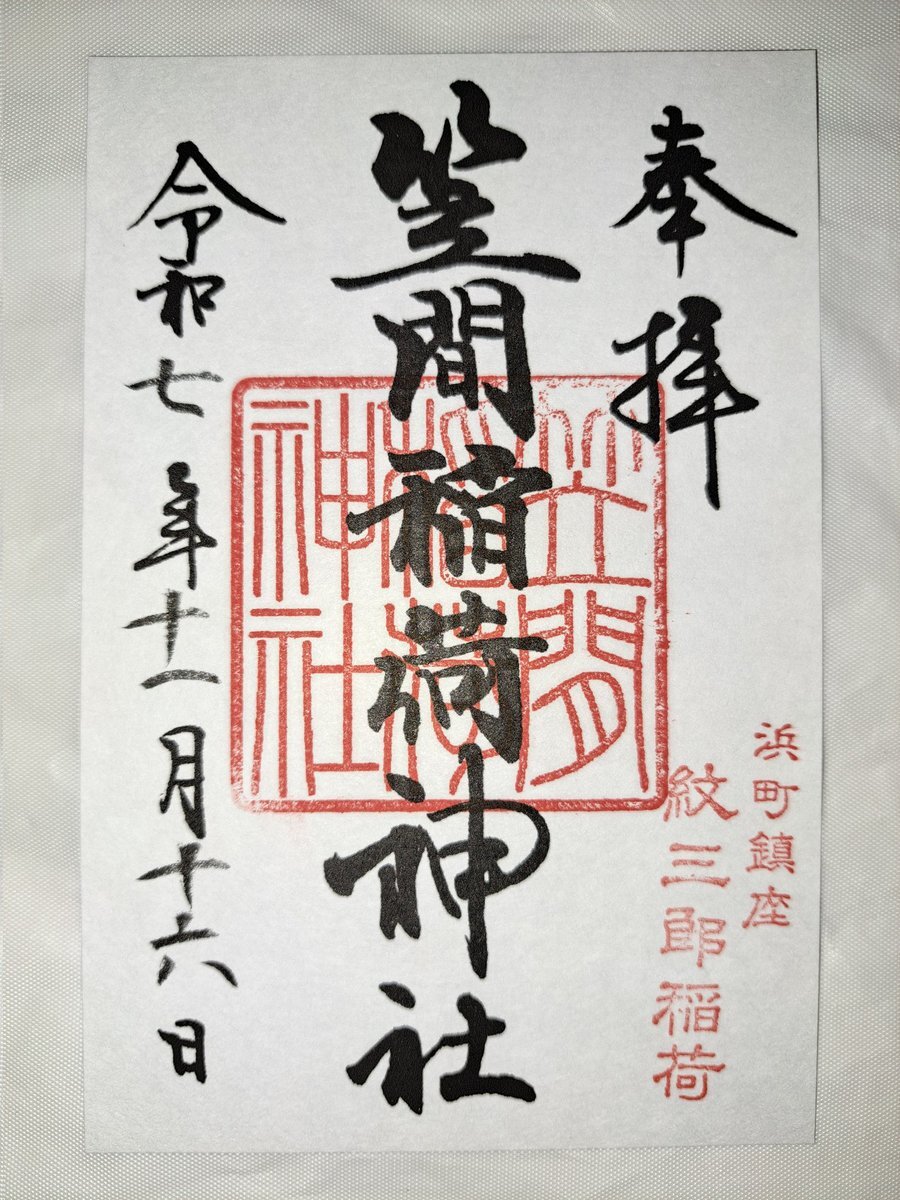 奉拝
浜町鎮座
紋三郎稲荷
笠間稲荷神社
笠間
稲荷
神社
令和七年十一月十六日